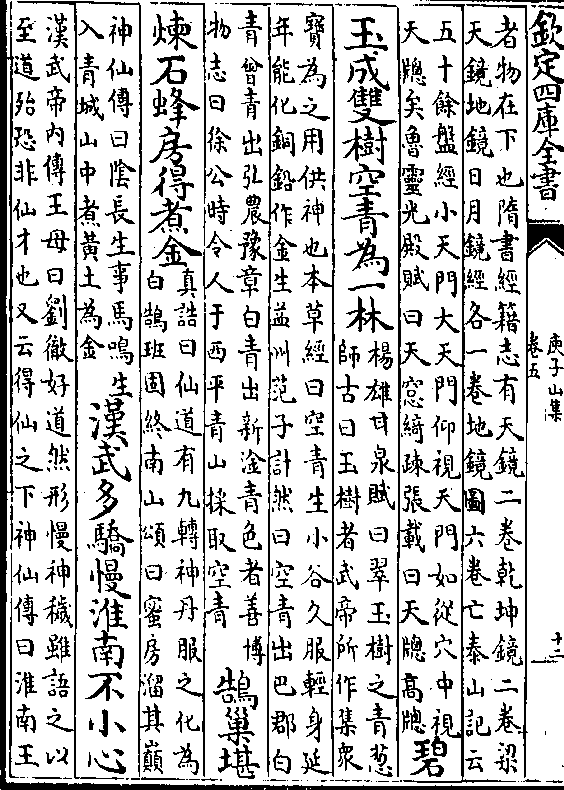 欽定四庫全書
庾子山集
卷五
十二
者物在下也隋書經籍志有天鏡二卷乾坤鏡二卷梁
天鏡地鏡日月鏡經各一卷地鏡圖六卷亡泰山記云
五十餘盤經小天門大天門仰視天門如從穴中視
天牕矣魯靈光殿賦曰天窓綺疎張載曰天牕高牕
碧
玉成雙樹空青為一林
楊雄甘泉賦曰翠玉樹之青葱
師古曰玉樹者武帝所作集衆
寶為之用供神也本草經曰空青生小谷久服輕身延
年能化銅鉛作金生益州范子計然曰空青出巴郡白
青曾青出弘農豫章白青出新淦青色者善博
物志曰徐公時令人于西平青山採取空青
鵠巢堪
煉石蜂房得煮金
真誥曰仙道有九轉神丹服之化為
白鵠班固終南山頌曰蜜房溜其巔
神仙傳曰陰長生事馬鳴生
入青城山中煮黃土為金
漢武多驕慢淮南不小心
漢武帝內傳王母曰劉徹好道然形慢神穢雖語之以
至道殆恐非仙才也又云得仙之下神仙傳曰淮南王